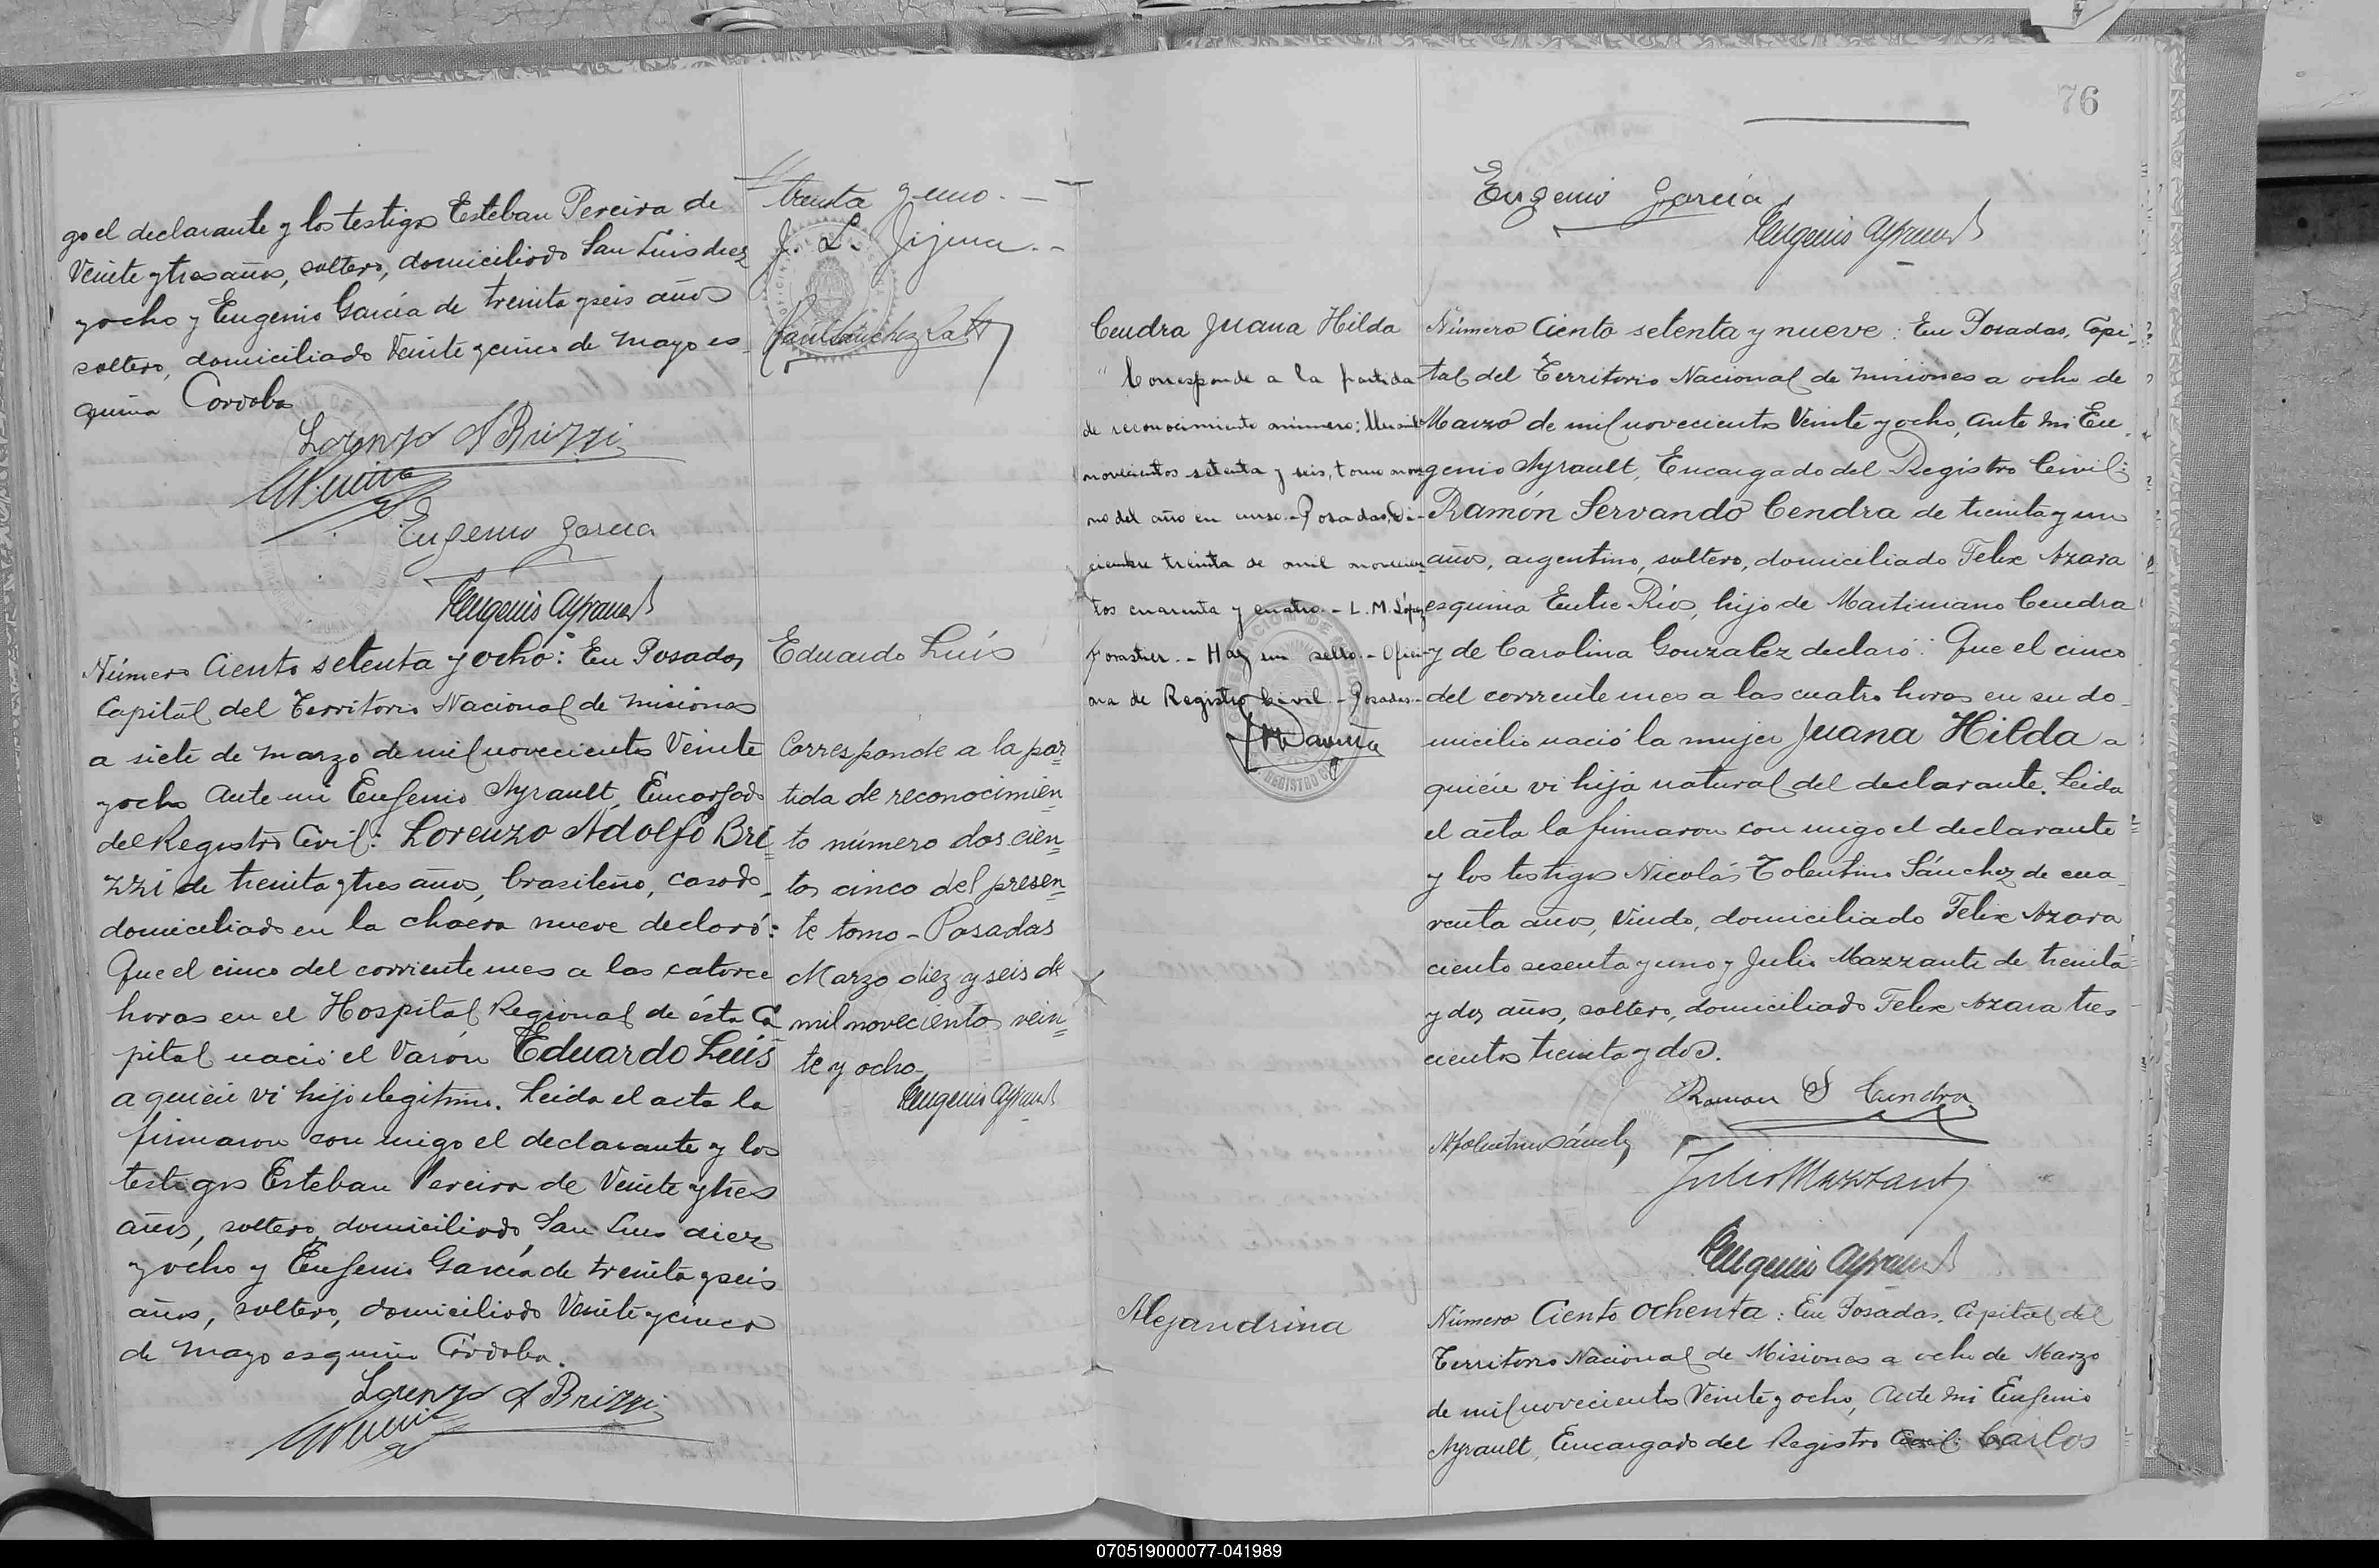 go el declarante y los testigos Esteban Pereira de
Veinte y tres años, soltero, domiciliado San Luis diez
y ocho y Eugenio García de treinta y seis años
soltero, domiciliado Veinte y cinco de Mayo es
quina Cordoba
Lorenzo A Brizzi
Eugenio Garcia
Eugenio Ayrault
Número Ciento setenta y ocho: En Posadas,
Capital del Territorio Nacional de Misiones
a siete de Marzo de mil novecientos Veinte
y ocho Ante mi Eugenio Ayrault, Encargado
del Registro Civil: Lorenzo Adolfo Bri
zzi de treinta y tres años, brasileño, casado
domiciliado en la chacra nueve declaró:
Que el cinco del corriente mes a las catorce
horas en el Hospital Regional de ésta Ca
pital nació el Varón Eduardo Luis
a quien vi hijo legitimo. Leida el acta la
firmaron con migo el declarante y los
testigos Esteban Pereira de Veinte y tres
años, soltero, domiciliado, San Luis diez
y ocho y Eugenio García de treinta y seis
años, soltero, domiciliado Veinte y cinco
de Mayo esquina Córdoba.
Lorenzo A Brizzi
treinta y uno. —
Eduardo Luís
Corresponde a la par
tida de reconocimien
to número dos cien
tos cinco del presen
te tomo - Posadas
Marzo diez y seis de
mil novecientos vein
te y ocho
Eugenio Ayrault
76
Eugenio García
Eugenio Ayrault
Cendra Juana Hilda
Corresponde a la partida
de reconocimiento número: Un mil
novecientos setenta y seis, tomo no
no del año en curso.- Posadas, Di-
ciembre treinta de mil novecien
tos cuarenta y cuatro.- L. M. López
Forastier. - Hay un sello. - Ofici-
na de Registro Civil - Posadas.-
Número Ciento setenta y nueve: En Posadas, Capi
tal del Territorio Nacional de Misiones a ocho de
Marzo de mil novecientos Veinte y ocho, Ante mi Eu
genio Ayrault, Encargado del Registro Civil:
Ramón Servando Cendra de treinta y un
años, argentino, soltero, domiciliado Felix Azara
esquina Entre Ríos, hijo de Martiniano Cendra
y de Carolina Gonzalez declaró: Que el cinco
del corriente mes a las cuatro horas en su do
micilio nació la mujer Juana Hilda a
quién vi hija natural del declarante. Leida
el acta la firmaron con migo el declarante
y los testigos Nicolás Tolentino Sánchez de cua
renta años, Viudo, domiciliado Felix Azara
ciento sesenta y uno y Julio Mazzante de treinta
y dos años, soltero, domiciliado Felix Azara tres
cientos treinta y dos.
Ramon S Cendra
Julio Mazzanti
Eugenio Ayrault
Alejandrina
Número Ciento ochenta: En Posadas, Capital del
Territorio Nacional de Misiones a ocho de Marzo
de mil novecientos Veinte y ocho, Ante mi Eugenio
Ayrault, Encargado del Registro Civil: Carlos
070519000077-041989